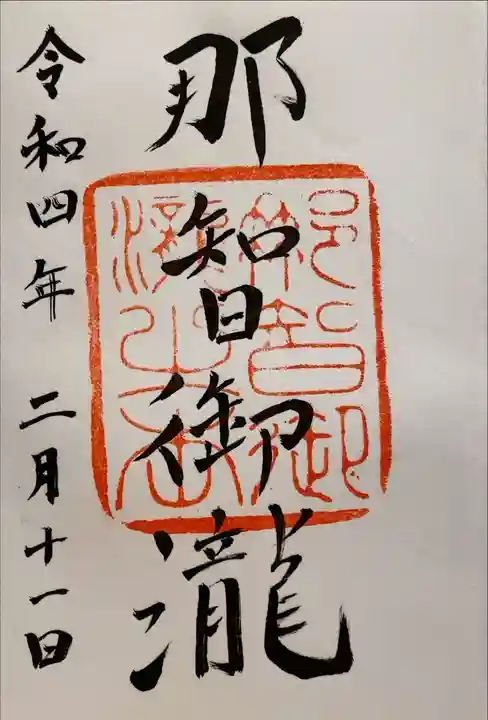 那智御瀧
令和四年 二月十一日